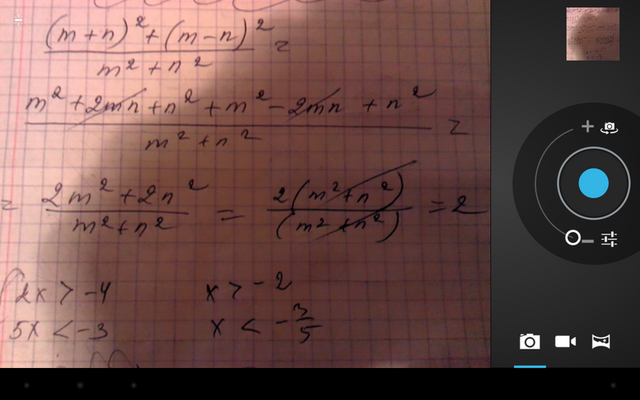 (m+n)² + (m-n)² / m² + n² =
m² + 2mn + n² + m² - 2mn + n² / m² + n² =
= 2m² + 2n² / m² + n² = 2(m² + n²) / (m² + n²) = 2
2x > -4 x > -2
5x < -3 x < -3/5